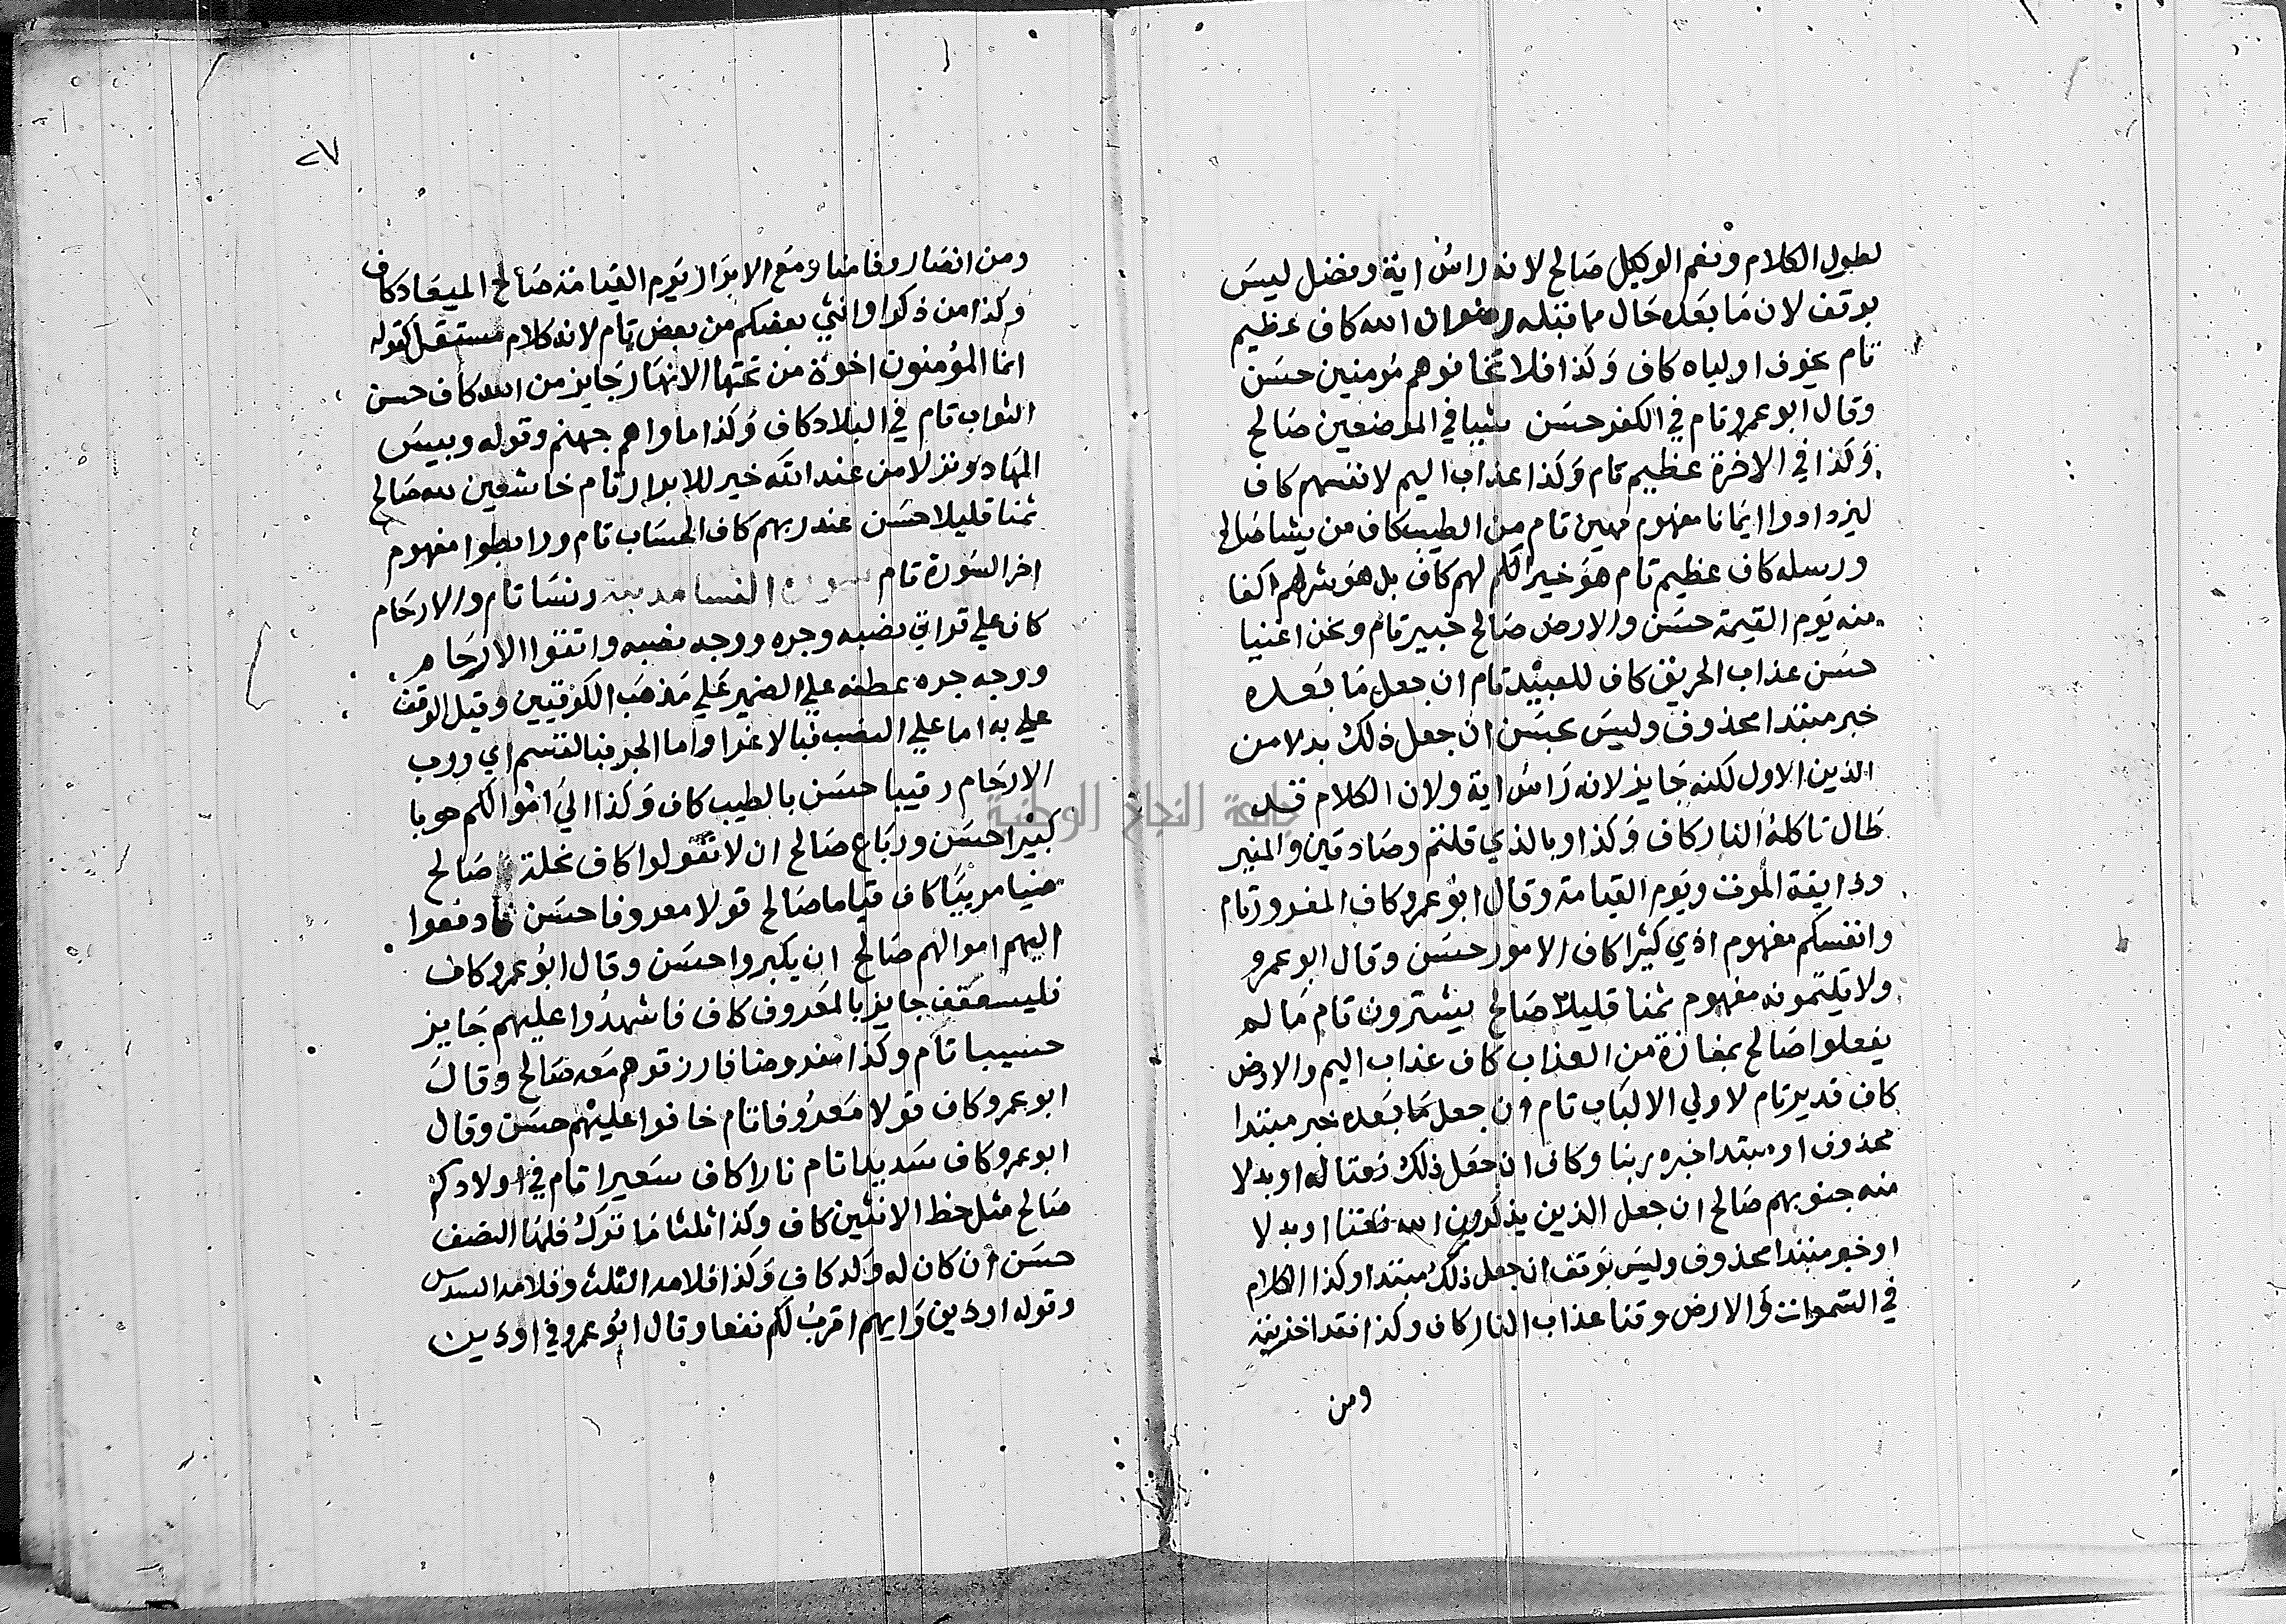 لطول الكلام ونعم الوكيل صالح لانه راس اية وفضل ليس
بوقف لان ما بعده حال مما قبله رضوان الله كاف عظيم
تام يخوف اولياه كاف وكذا فلا تخافوهم مومنين حسن
وقال ابو عمرو تام في الكفر حسن شيا في الموضعين صالح
وكذا في الاخرة عظيم تام وكذا عذاب اليم لانفسهم كاف
ليزدادوا ايمانا مفهوم مهين تام من الطيب كاف من يشا صالح
ورسله كاف عظيم تام هو خيرا لهم كاف بل هو شر لهم اكفا
منه يوم القيمة حسن والارض صالح خبير تام ونحن اغنيا
حسن عذاب الحريق كاف للعبيد تام ان جعل ما بعده
خبر مبتدا محذوف وليس بحسن ان جعل ذلك بدلا من
الذين الاول لكنه جايز لانه راس اية ولان الكلام قد
طال تاكله النار كاف وكذا وبالذي قلتم وصادقين والمنير
وذايقة الموت ويوم القيامة وقال ابو عمرو كاف الغرور تام
وانفسكم مفهوم اذي كثيرا كاف الامور حسن وقال ابو عمرو
ولا تكتمونه مفهوم ثمنا قليلا صالح يشترون تام ما لم
يفعلوا صالح بمفازة من العذاب كاف عذاب اليم والارض
كاف قدير تام لاولي الالباب تام ان جعل ما بعده خبر مبتدا
محذوف او مبتدا خبره ربنا وكاف ان جعل ذلك نعتا له او بدلا
منه جنوبهم صالح ان جعل الذين يذكرون الله نعتا او بدلا
او خبر مبتدا محذوف وليس بوقف ان جعل ذلك مبتدا وكذا الكلام
في السموات والارض وقنا عذاب النار كاف وكذا فقد اخزيته
ومن
٢٧
ومن انصار وفامنا ومع الابرار يوم القيامة صالح الميعاد كاف
وكذا من ذكر او انثي بعضكم من بعض تام لانه كلام مستقل كقوله
انما المؤمنون اخوة من تحتها الانهار جايز من الله كاف حسن
الثواب تام في البلاد كاف وكذا ماواهم جهنم وقوله وبيس
المهاد ونزلا من عند الله خير للابرار تام خاشعين لله صالح
ثمنا قليلا حسن عند ربهم كاف الحساب تام ورابطوا مفهوم
اخر السورة تام سورة النسا مدنية ونسا تام والارحام
كاف علي قراتي نصبه وجره ووجه نصبه واتقوا الارحام
ووجه جره عطفه علي الضمير علي مذهب الكوفيين وقيل الوقف
علي به اما علي النصب فبالاغرا واما الجر فبالقسم اي ورب
الارحام رقيبا حسن بالطيب كاف وكذا الي اموالكم حوبا
كبيرا حسن ورباع صالح ان لا تعولوا كاف نحلة صالح
هنيا مرييا كاف قياما صالح قولا معروفا حسن فادفعوا
اليهم اموالهم صالح ان يكبروا حسن وقال ابو عمرو كاف
فليستعفف جايز بالمعروف كاف فاشهدوا عليهم جايز
حسيبا تام وكذا مفروضا فارزقوهم معه صالح وقال
ابو عمرو كاف قولا معروفا تام خافوا عليهم حسن وقال
ابو عمرو كاف سديدا تام نارا كاف سعيرا تام في اولادكم
صالح مثل حظ الانثيين كاف وكذا ثلثا ما ترك فلها النصف
حسن ان كان له ولد كاف وكذا فلامه الثلث وفلامه السدس
وقوله او دين وايهم اقرب لكم نفعا وقال ابو عمرو في او دين
جامعة النجاح الوطنية